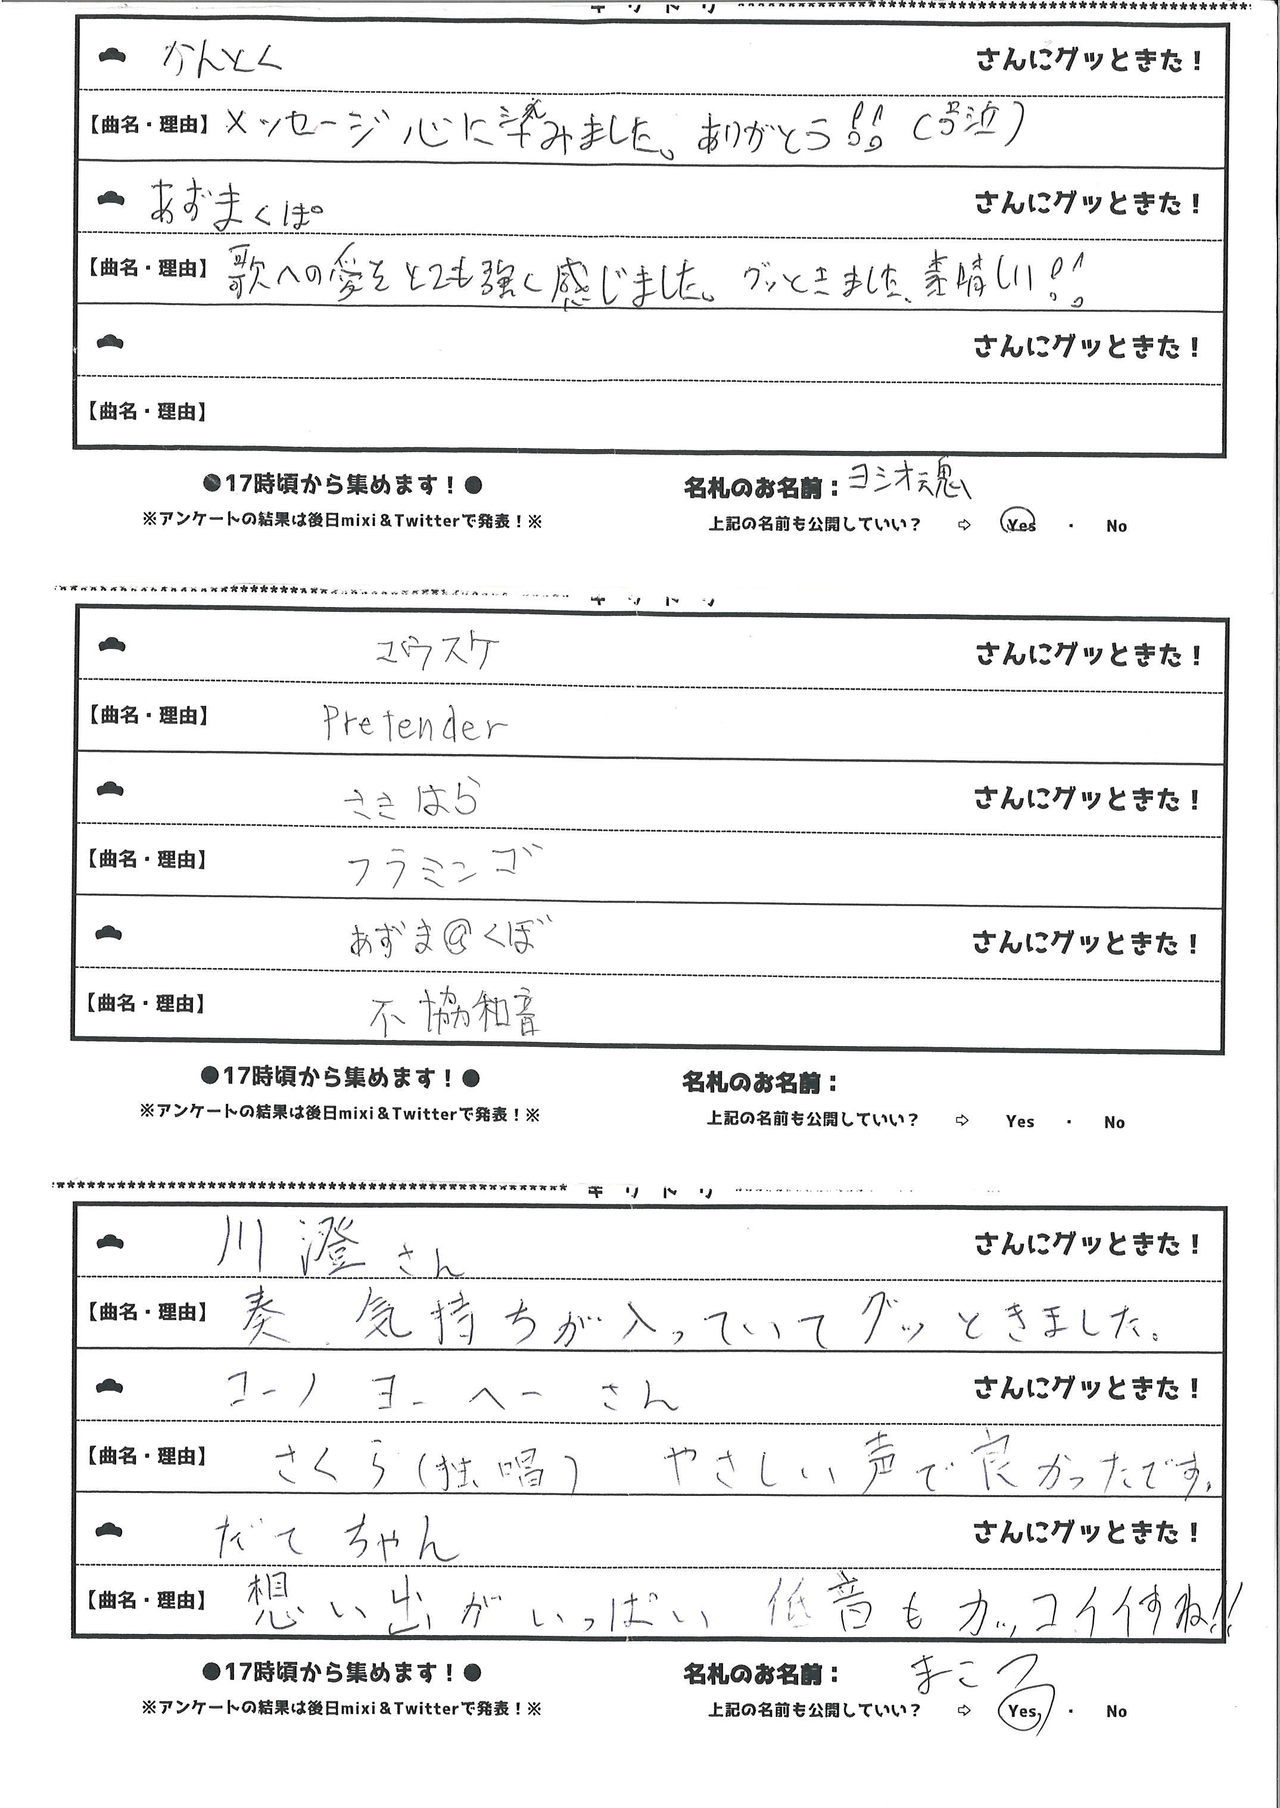 キリトリ
かんとく さんにグッときた！
【曲名・理由】メッセージ心に染みました。ありがとう!!(号泣)
あずまくぼ さんにグッときた！
【曲名・理由】歌への愛をとても強く感じました。グッときました、素晴しい!!
さんにグッときた！
【曲名・理由】
●17時頃から集めます！● 名札のお名前：ヨシオ魂
※アンケートの結果は後日mixi＆Twitterで発表！※ 上記の名前も公開していい？ ⇨ Yes ・ No
キリトリ
コウスケ さんにグッときた！
【曲名・理由】 Pretender
ささはら さんにグッときた！
【曲名・理由】 フラミンゴ
あずま@くぼ さんにグッときた！
【曲名・理由】 不協和音
●17時頃から集めます！● 名札のお名前：
※アンケートの結果は後日mixi＆Twitterで発表！※ 上記の名前も公開していい？ ⇨ Yes ・ No
キリトリ
川澄さん さんにグッときた！
【曲名・理由】 奏、気持ちが入っていてグッときました。
コーノヨーヘーさん さんにグッときた！
【曲名・理由】 さくら(独唱) やさしい声で良かったです。
だてちゃん さんにグッときた！
【曲名・理由】 想い出がいっぱい 低音もカッコイイすね!!
●17時頃から集めます！● 名札のお名前： まこつ
※アンケートの結果は後日mixi＆Twitterで発表！※ 上記の名前も公開していい？ ⇨ Yes ・ No